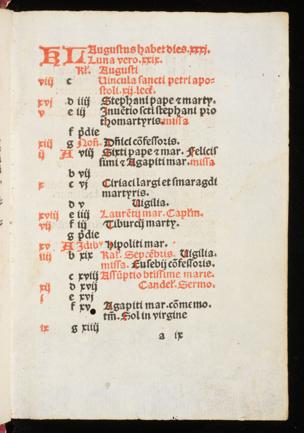 KL Augustus habet dies.xxxj.
Luna vero.xxix.
Kł. Augusti
viij c Uincula sancti petri apo-
stoli.xij.lect̄.
xvj d iiij Stephani pape ⁊ marty.
v e iij Inuētio scti stephani pro
thomartyris.missa
f p̄die
xiij g Noñ. Dñici cōfessoris.
ij A viij Sixti pape ⁊ mar. Felicis
simi ⁊ Agapiti mar. missa
b vij
x c vj Ciriaci largi et smaragdi
martyris.
d v Uigilia.
xviij e iiij Laurētij mar. Cap̄lm.
vij f iij Tiburcij marty.
g p̄die
xv A Jdibꝰ hipoliti mar.
iiij b xix Kał. Septēbris. Uigilia.
missa. Eusebij cōfessoris.
c xviij Assūptio btissime marie.
xij d xvij Candeł. Sermo.
j e xvj
f xv Agapiti mar. cōmemo.
tm̄. Sol in virgine
ix g xiiij
a ix